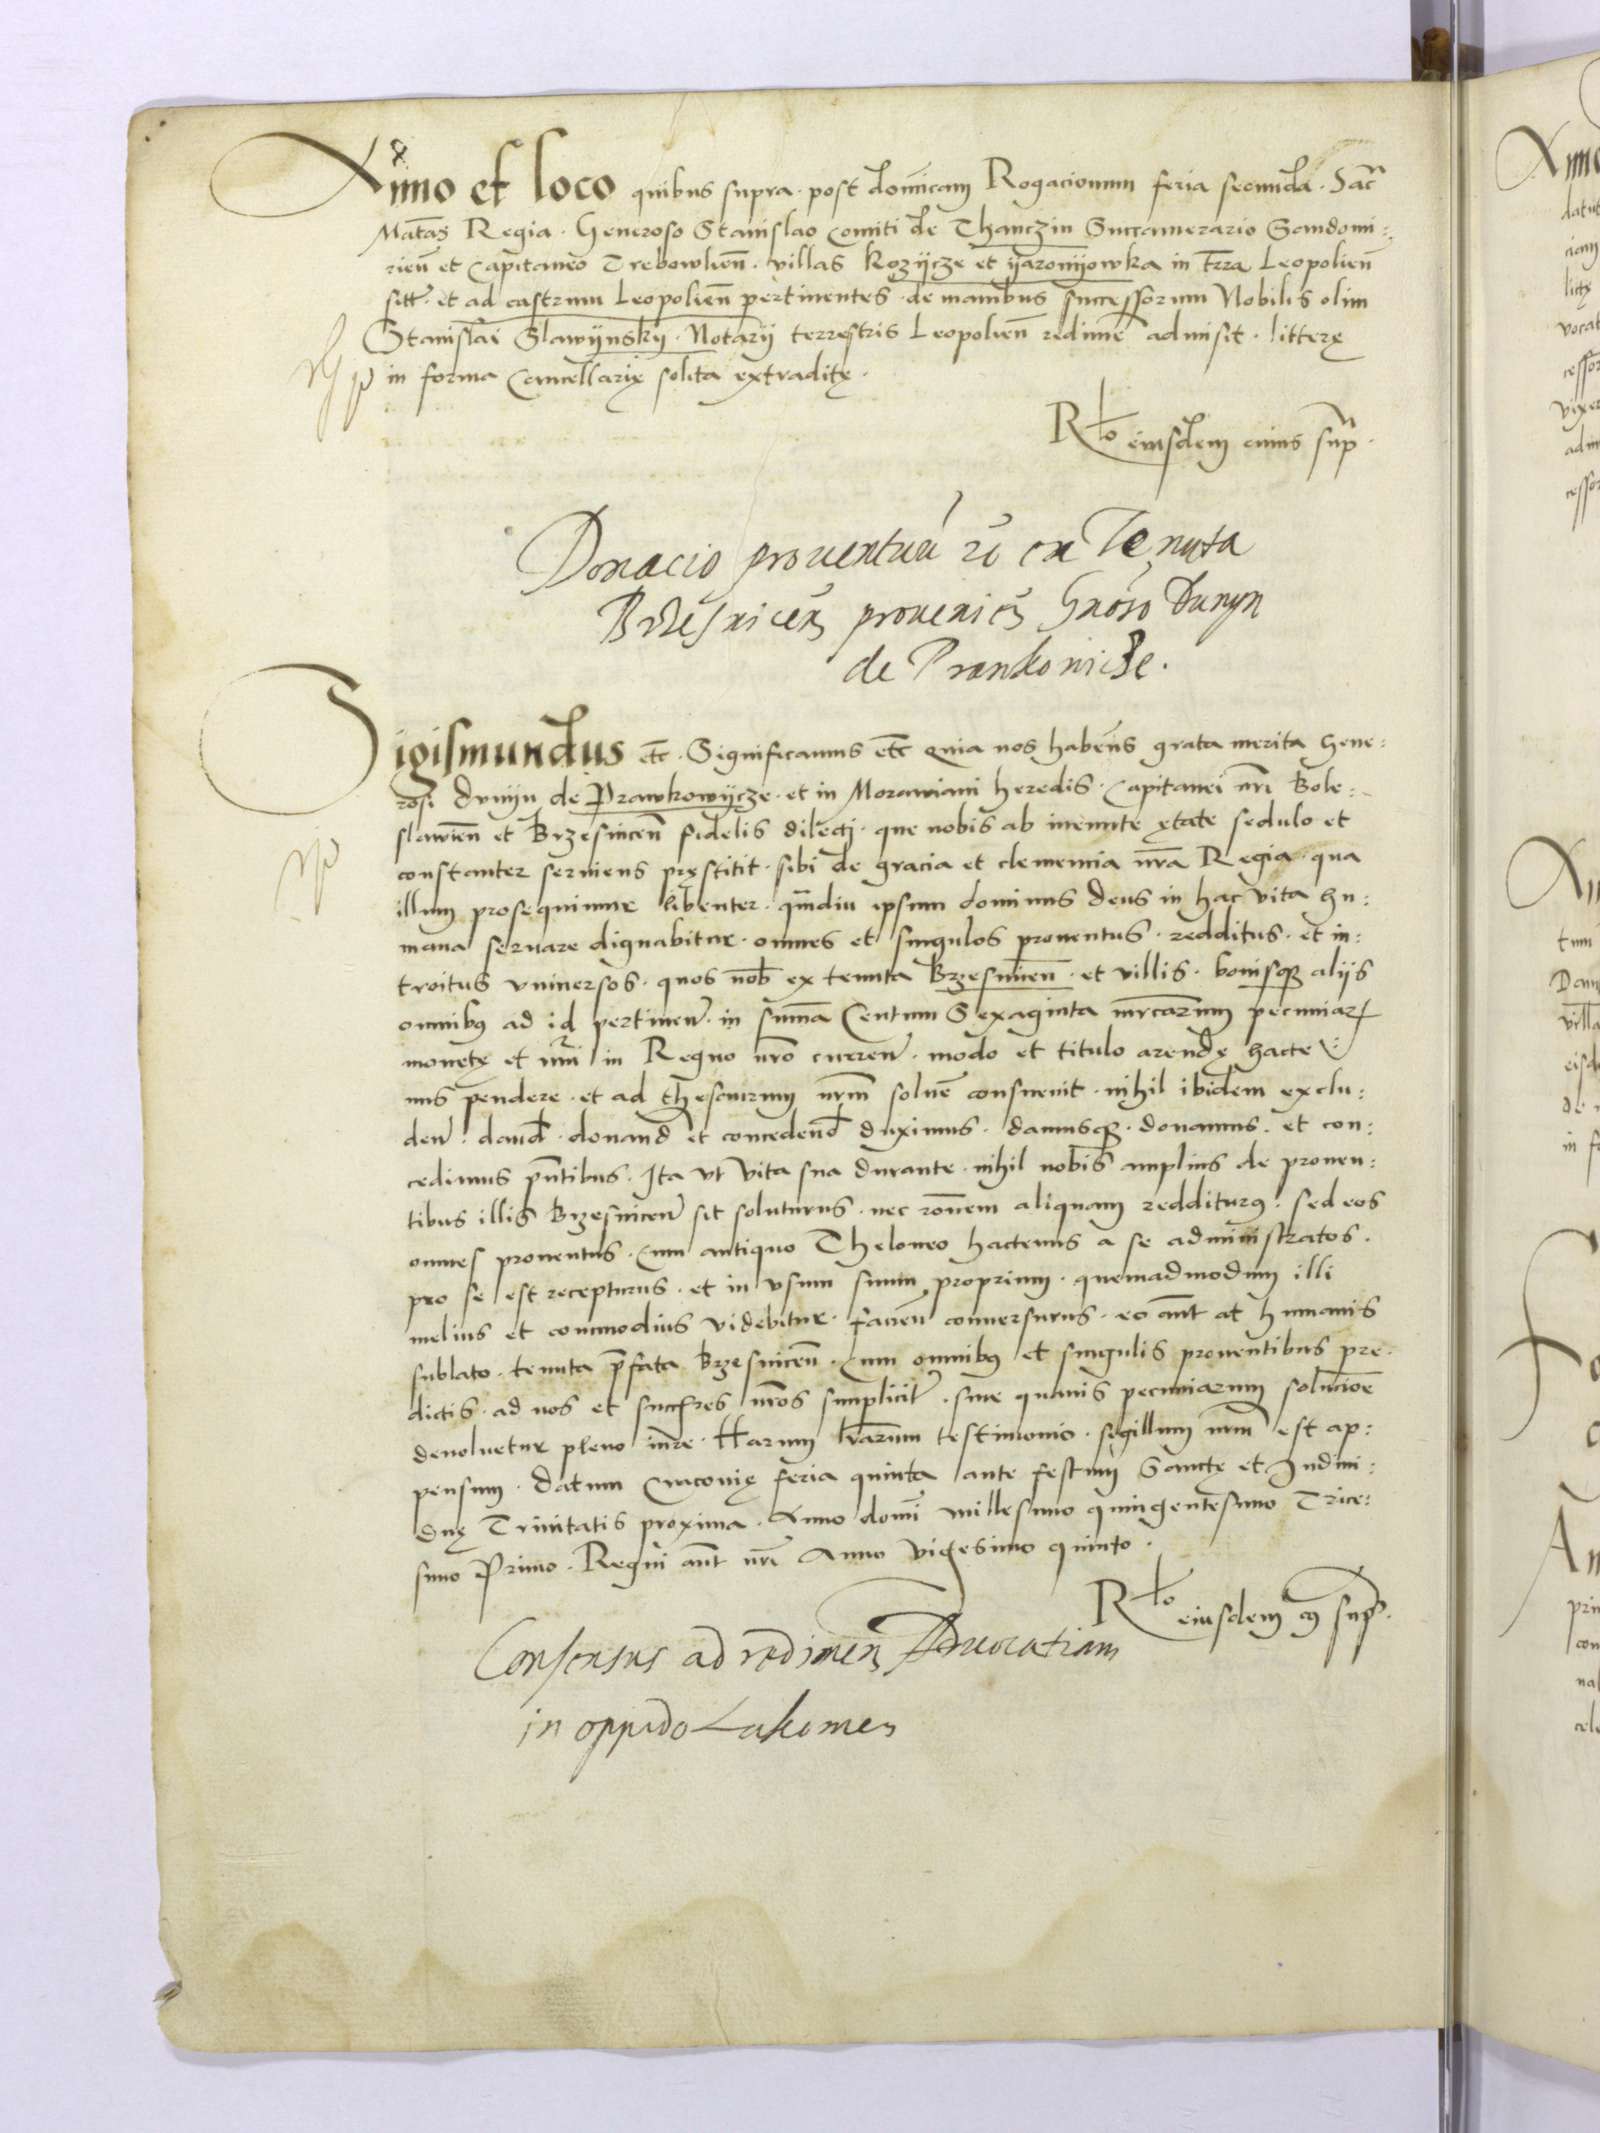 Anno et loco quibus supra. post dominicam Rogacionum feria secunda. Sacr̃
Mat̃as Regia. Generoso Stanislao Comiti de Thanczin Succamerario Sandomi:
rien̄ et Capitaneo Trebowlien̄. villas Kozijcze et ijaronijowka in t̄rra Leopolien̄
sitt̄. et ad castrum Leopolien̄ pertinentes. de manibus successorum Nobilis olim
Stanislai Slawijnskij. Notarij terrestris Leopolien̄ redime᷑ admisit. litterę
in forma Cancellarię solita extraditę.
R̄lo eiusdem cuius sup̄.
Donacio proventuū ex Tenuta
Brzesnicen̄ provenien̄ Gn̄oso Dunyn
de Prankowicze.
Sigismundus etc̄. Significamus etc̄ Quia nos habentes grata merita Gene:
rosi Dunijn de Prawkowijcze. et in Morawiani heredis. Capitanei nr̄i Bole:
slawien̄ et Brzesnicen̄ fidelis dilecti. que nobis ab ineunte ętate sedulo et
constanter serviens pręstitit. sibi de gracia et clemencia nr̄a Regia. qua
illum prosequimur libenter. qm̄diu ipsum dominus deus in hac vita hu:
mana servare dignabitur. omnes et singulos proventus. redditus. et in:
troitus universos. quos nob̄ ex tenuta Brzesnicen̄. et villis. bonisq; aliis
omnibus ad id pertinen̄. in sum̄a Centum Sexaginta mrcarum pecuniar̄
monetę et nr̄i in Regno nr̄o curren̄. modo et titulo arendę hacte:
nus pendere. et ad thesaurum nr̄m solve᷑ consuevit. nihil ibidem exclu:
den̄. dand̄. donand̄ et concedend̄ duximus. damusq;. donamus. et con:
cedimus p̄ntibus. Ita ut vita sua durante. nihil nobis amplius de proven:
tibus illis Brzesnicen̄ sit soluturus. nec ron̄em aliquam redditurus. sed eos
omnes proventus. cum antiquo Theloneo hactenus a se administratos.
pro se est recepturus. et in usum suum proprium. quemadmodum illi
melius et commodius videbitur. conversurus. eo aūt ab humanis
sublato. tenuta p̄fata Brzesnicen̄. cum omnibus et singulis proventibus pre:
dictis. ad nos et succ̄res nr̄os simplicit̄. sine quavis pecuniarum solucione᷑
devolvetur pleno iure. Harum lr̄arum testimonio. sigillum nr̄m est ap:
pensum. Datum Cracovię feria quinta ante festum Sanctę et Indivi:
duę Trinitatis proxima. Anno domi᷑ millesimo quingentesimo Trice:
simo Primo. Regni aūt nr̄i Anno vigesimo quinto.
R̄lo eiusdem cs̄ sup̄.
Consensus ad redimen̄ Advocatiam
in oppido Lakomen̄